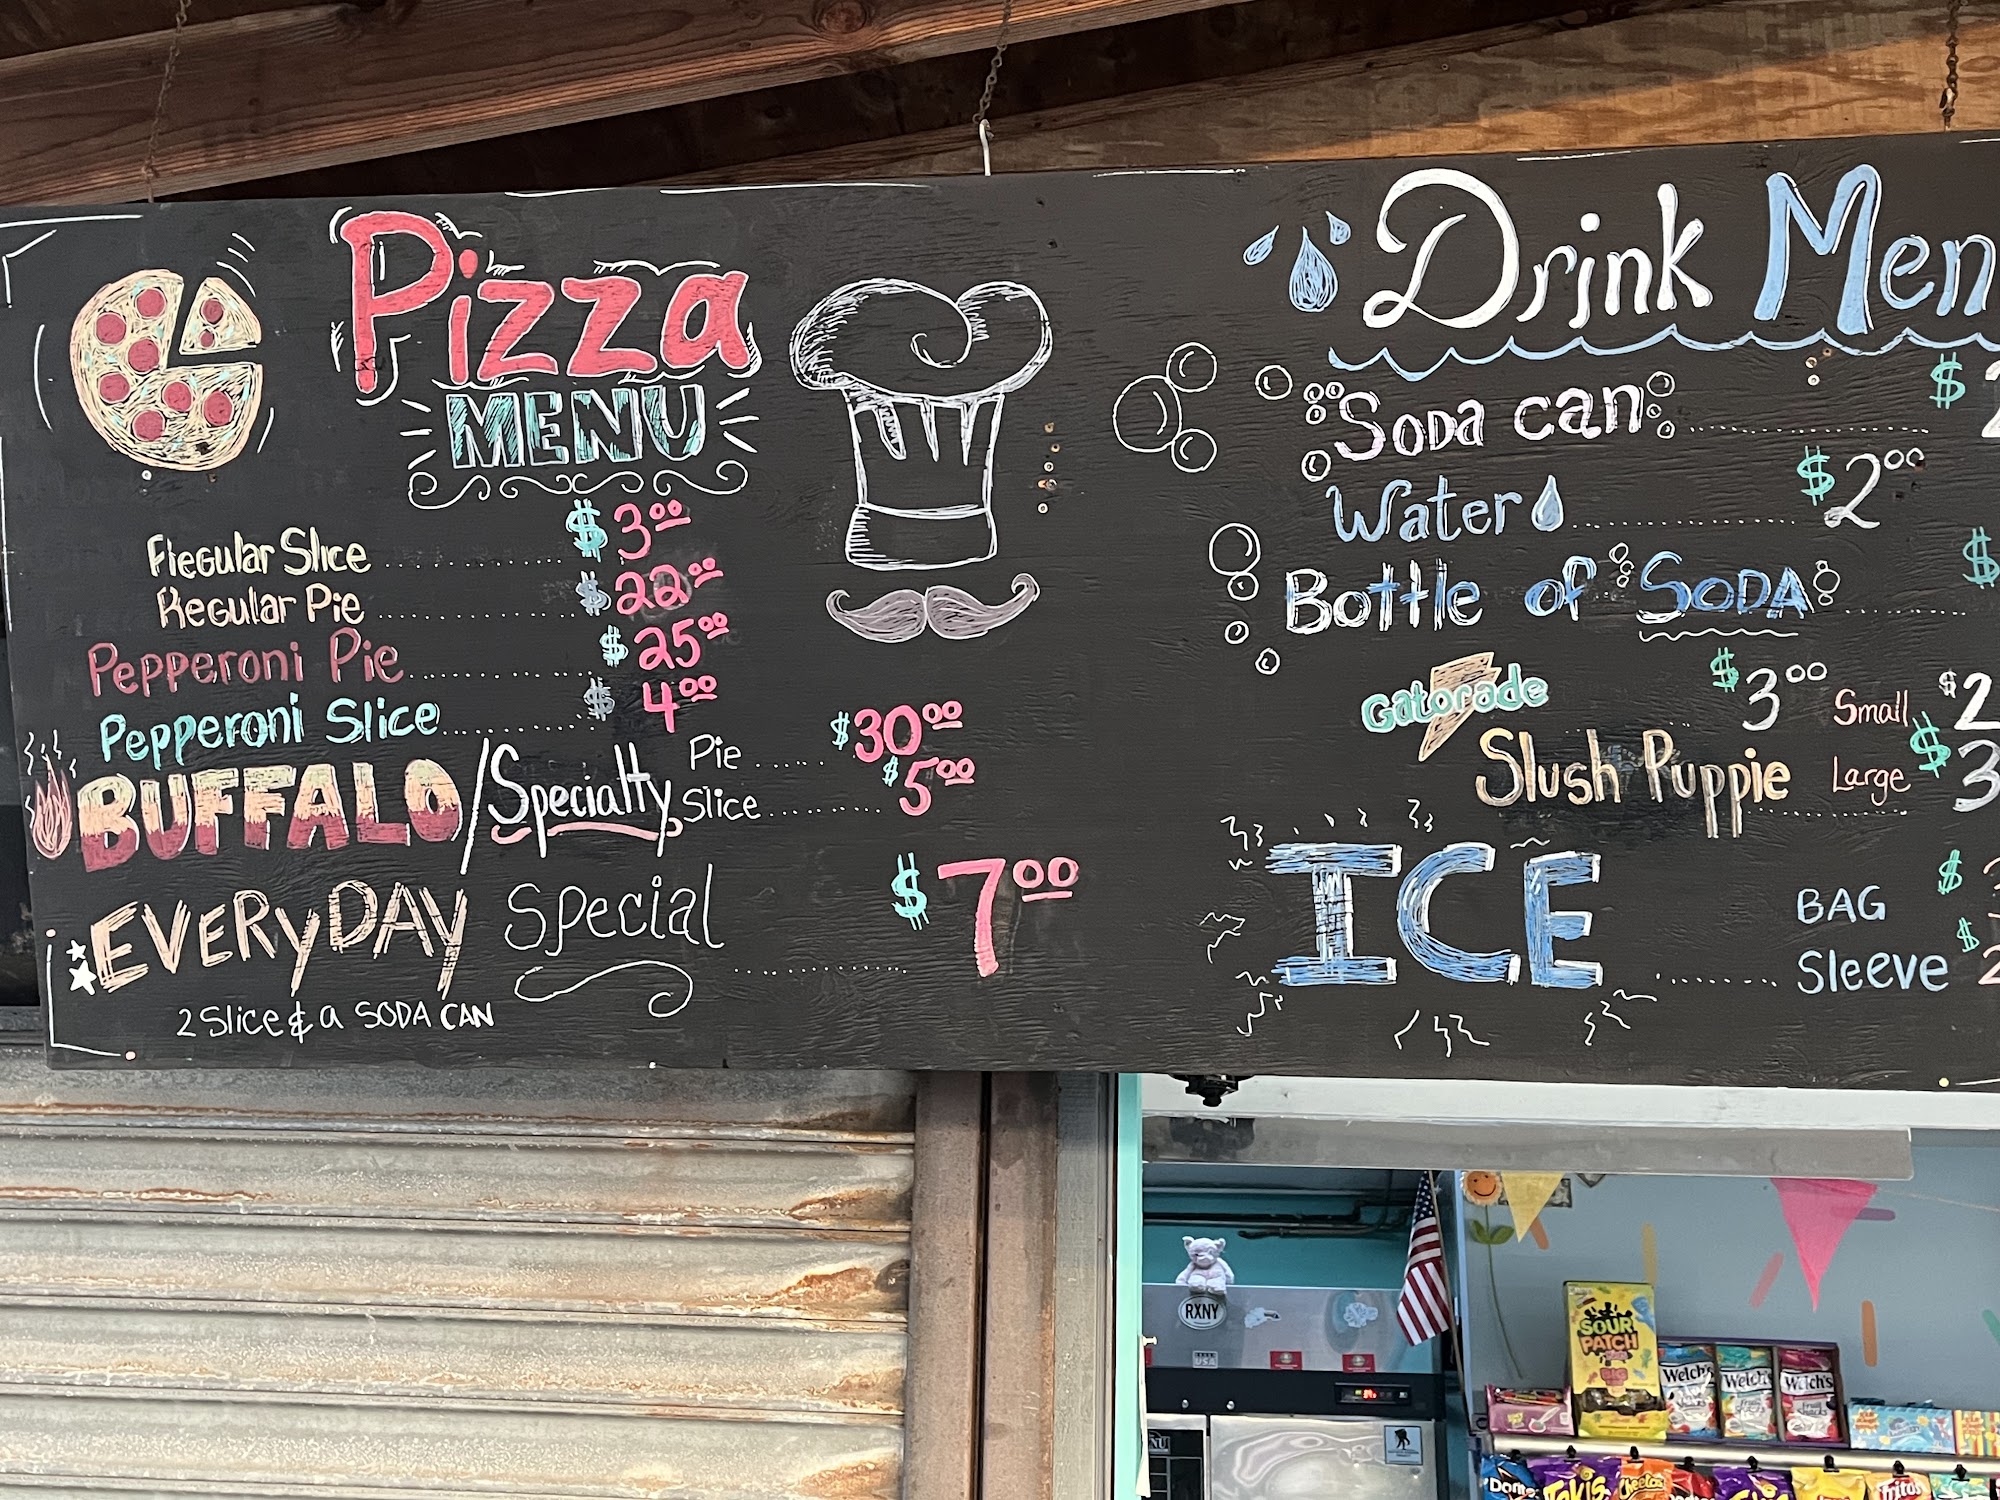 Pizza
MENU
Regular Slice ........ $3.00
Regular Pie ........ $22.00
Pepperoni Pie ........ $25.00
Pepperoni Slice ........ $4.00
BUFFALO/Specialty
Pie ..... $30.00
Slice ........ $5.00
EVERYDAY Special ........ $7.00
2 Slice & a SODA CAN
Drink Men
Soda can ........ $2
Water ........ $2.00
Bottle of SODA ........ $
Gatorade $3.00
Slush Puppie ........
Small $2
Large $3
ICE ........
BAG $
Sleeve $2
RXNY
USA
SOUR
PATCH
KIDS
BIG
Welch's
Welch's
Welch's
Doritos
Takis
Cheetos
Fritos